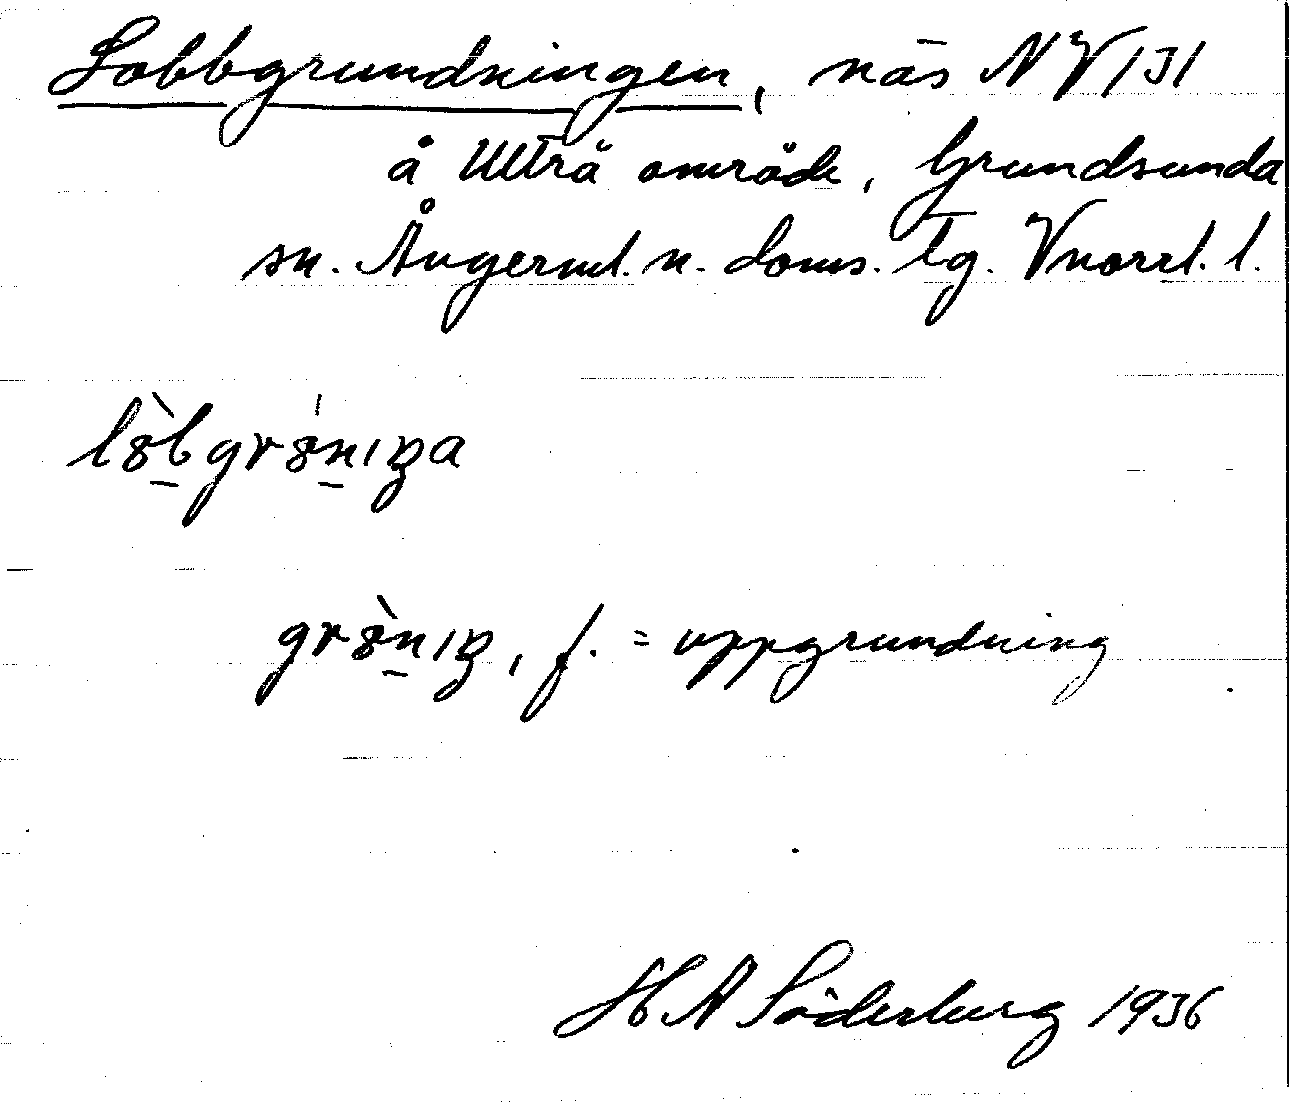 Lobbgrundningen, näs NV 131
å Ulträ område, Grundsunda
sn. Ångerml. n. doms. tg. Vnorrl. l.
gr, f. = uppgrundning
H A Söderburg 1936